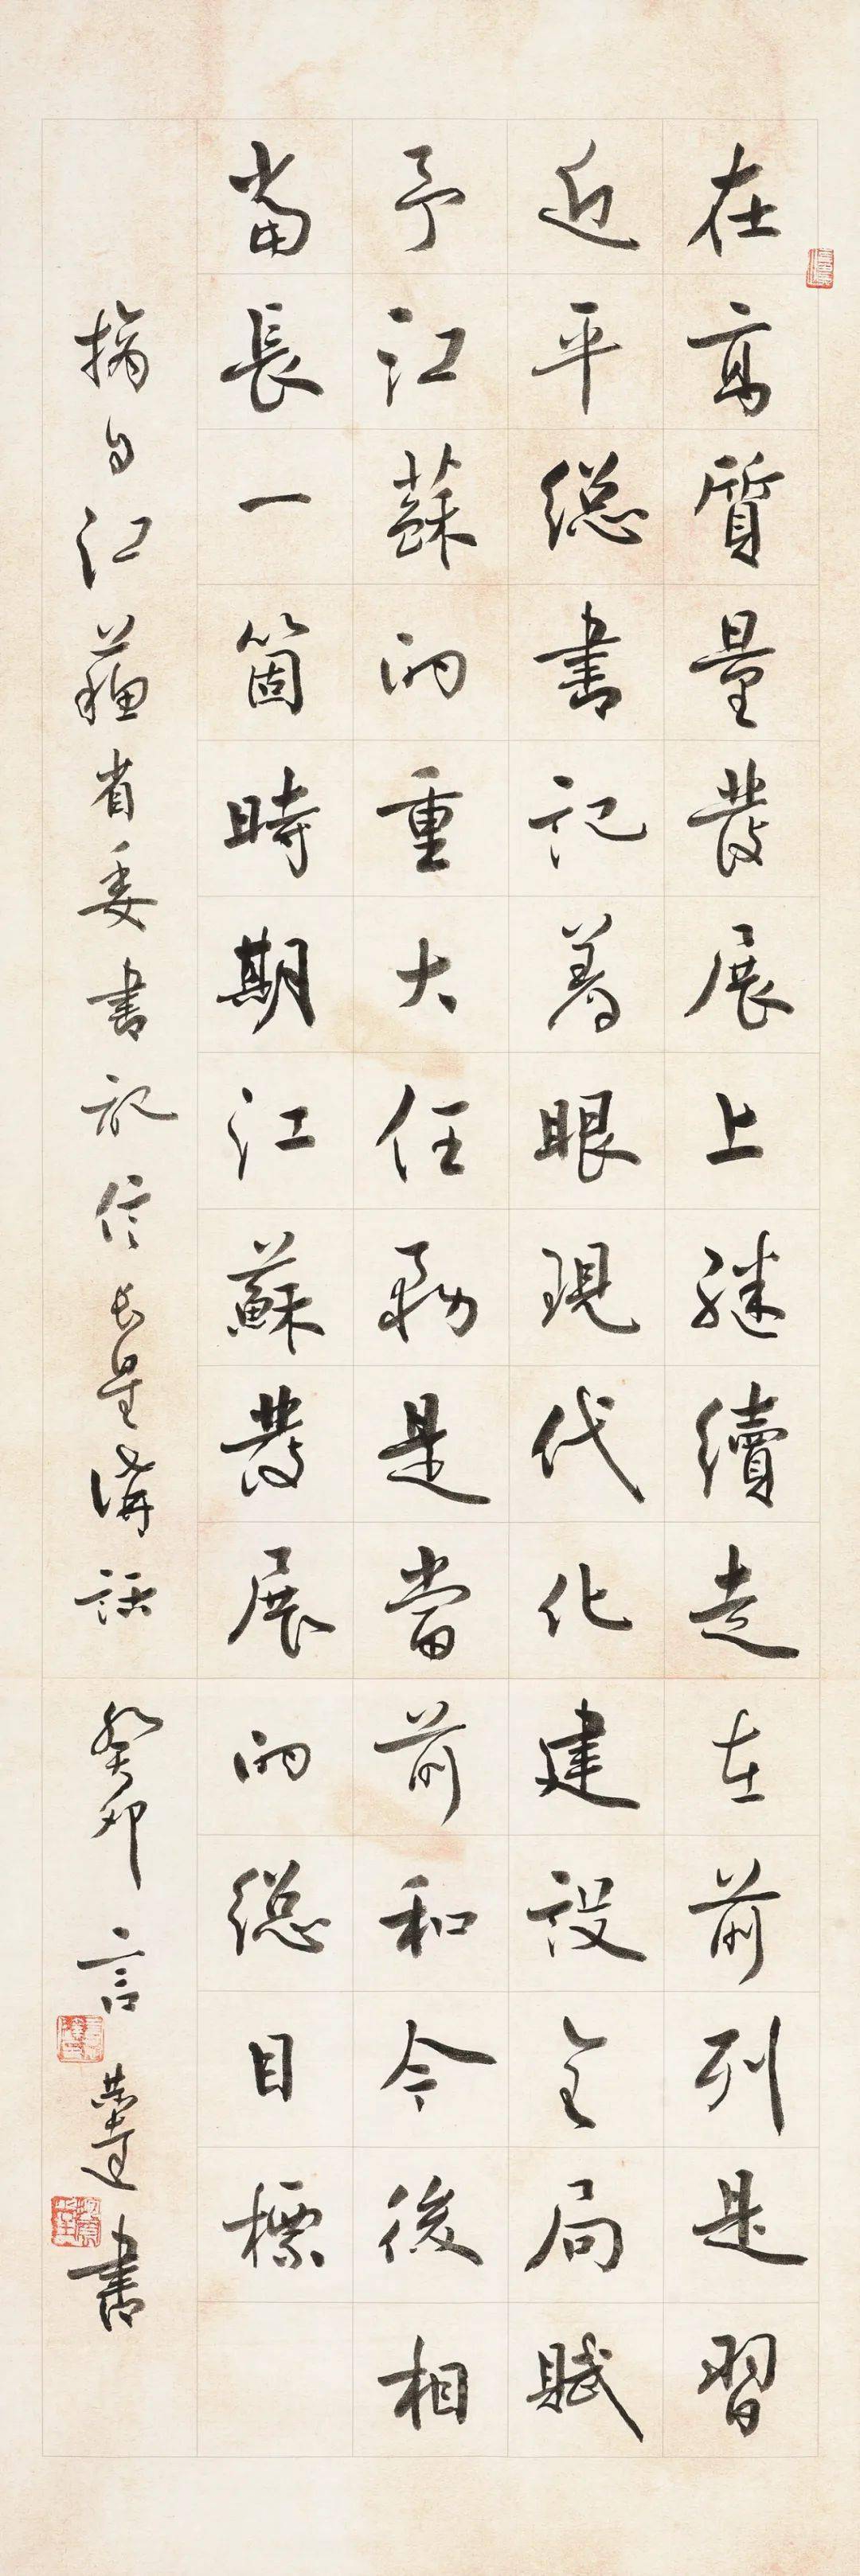 在高質量發展上繼續走在前列是習
近平総書記着眼現代化建設全局賦
予江蘇的重大任務是當前和今後相
當長一箇時期江蘇發展的総目標
摘自江蘇省委書記信長星講話 癸卯 言恭達書